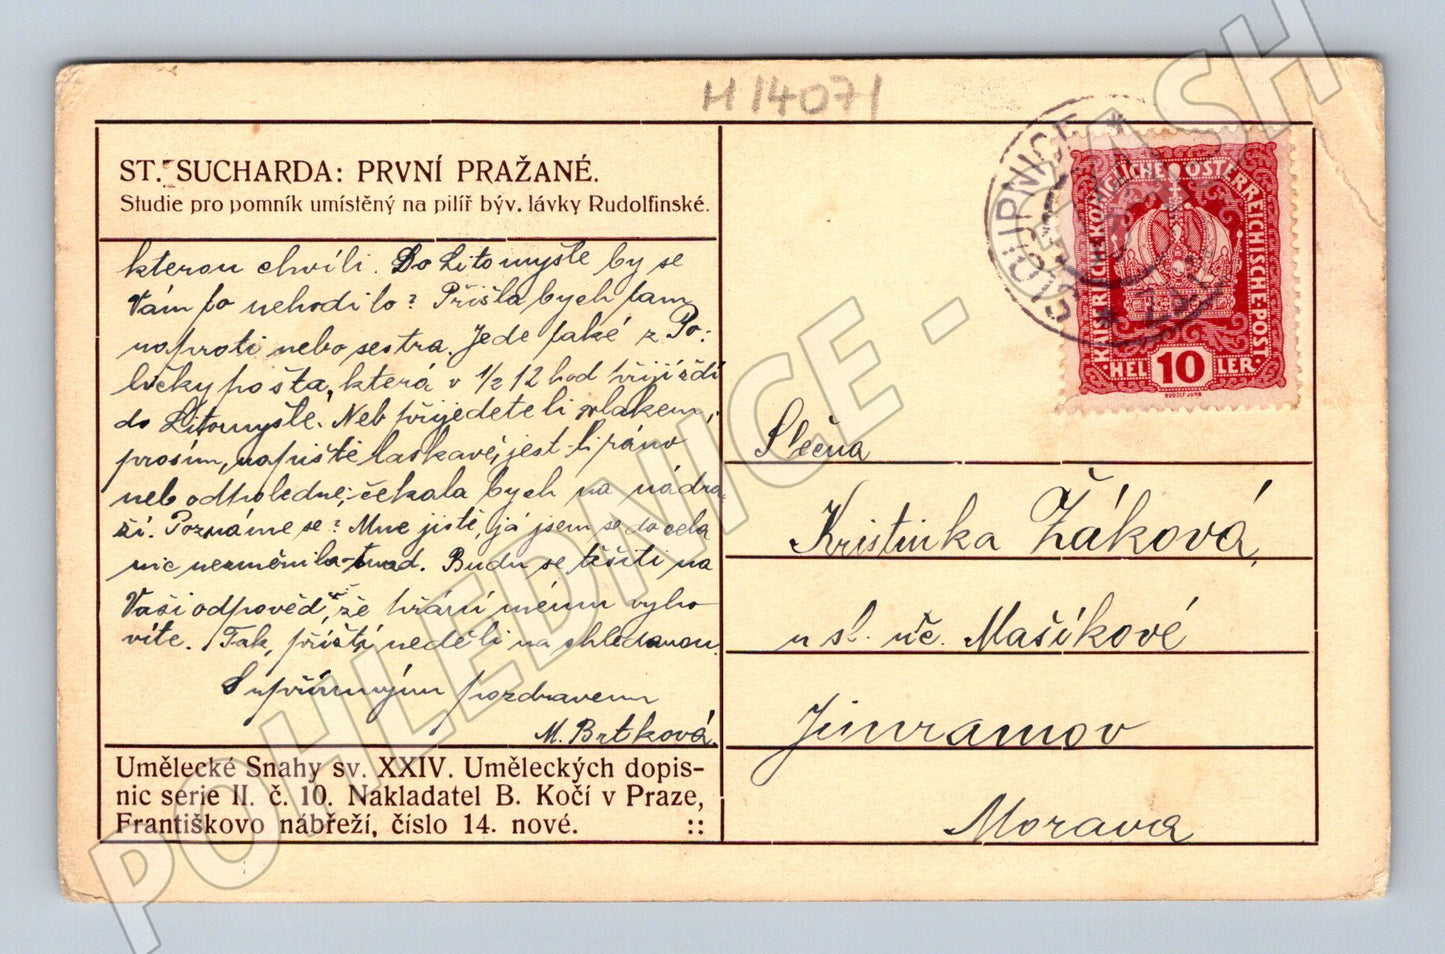 H 14071
ST. SUCHARDA: PRVNÍ PRAŽANÉ.
Studie pro pomník umístěný na pilíř býv. lávky Rudolfinské.
kterou chvíli. Do Litomyšle by se
Vám to nehodilo? Přišla bych tam
naproti nebo sestra. Jede také z Po-
ličky pošta, která v 1/2 12 hod přijíždí
do Litomyšle. Neb přijedete li vlakem,
prosím, napiště laskavě, jest-li ráno
neb odpoledne, čekala bych na nádra-
ží. Poznáme se? Mne jistě, já jsem se docela
nic nezměnila snad. Budu se těšiti na
Vaši odpověď, že přání mému vyho-
víte. Tak, příští neděli na shledanou.
S upřímným pozdravem
M. Brtková.
Umělecké Snahy sv. XXIV. Uměleckých dopis-
nic serie II. č. 10. Nakladatel B. Kočí v Praze,
Františkovo nábřeží, číslo 14. nové. ::
KAISERLICHE KÖNIGLICHE ÖSTERREICHISCHE POST
HELLER 10
RUDOLF JUNK
Slečna
Kristinka Žáková,
u sl. uč. Mašíkové
Jimramov
Morava
POHLEDNICE - ASH